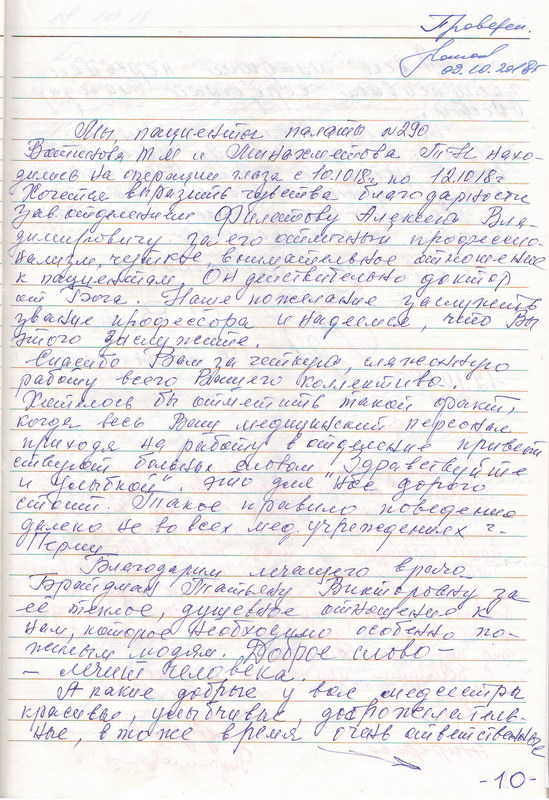 Проверен.
09.10.2018г
Мы пациенты палаты №290
Вотинова ТМ и Минахметова ТН нахо-
дились на операции глаза с 10.10.18г по 12.10.18г
Хочется выразить чувства благодарности
зав. отделением Филатову Алексею Вла-
димировичу за его отличный професси-
нализм, чуткое, внимательное отношение
к пациентам. Он действительно доктор
от Бога. Наше пожелание заслужить
звание профессора и надеемся, что Вы
этого заслужите.
Спасибо Вам за чёткую, слаженную
работу всего Вашего коллектива.
Хотелось бы отметить такой факт,
когда весь Ваш медицинский персонал
приходя на работу в отделение привет
ствуют больных словом "Здравствуйте
и улыбкой". Это для нас дорого
стоит. Такое правило поведения
далеко не во всех мед. учреждениях г.
Перми.
Благодарим лечащего врача
Брандман Татьяну Викторовну за
её тёплое, душевное отношение к
нам, которое необходимо особенно по-
жилым людям. Доброе слово -
- лечит человека.
А какие добрые у вас медсестры
красивые, улыбчивые, доброжелатель-
ные, в то же время очень ответственные
-10-